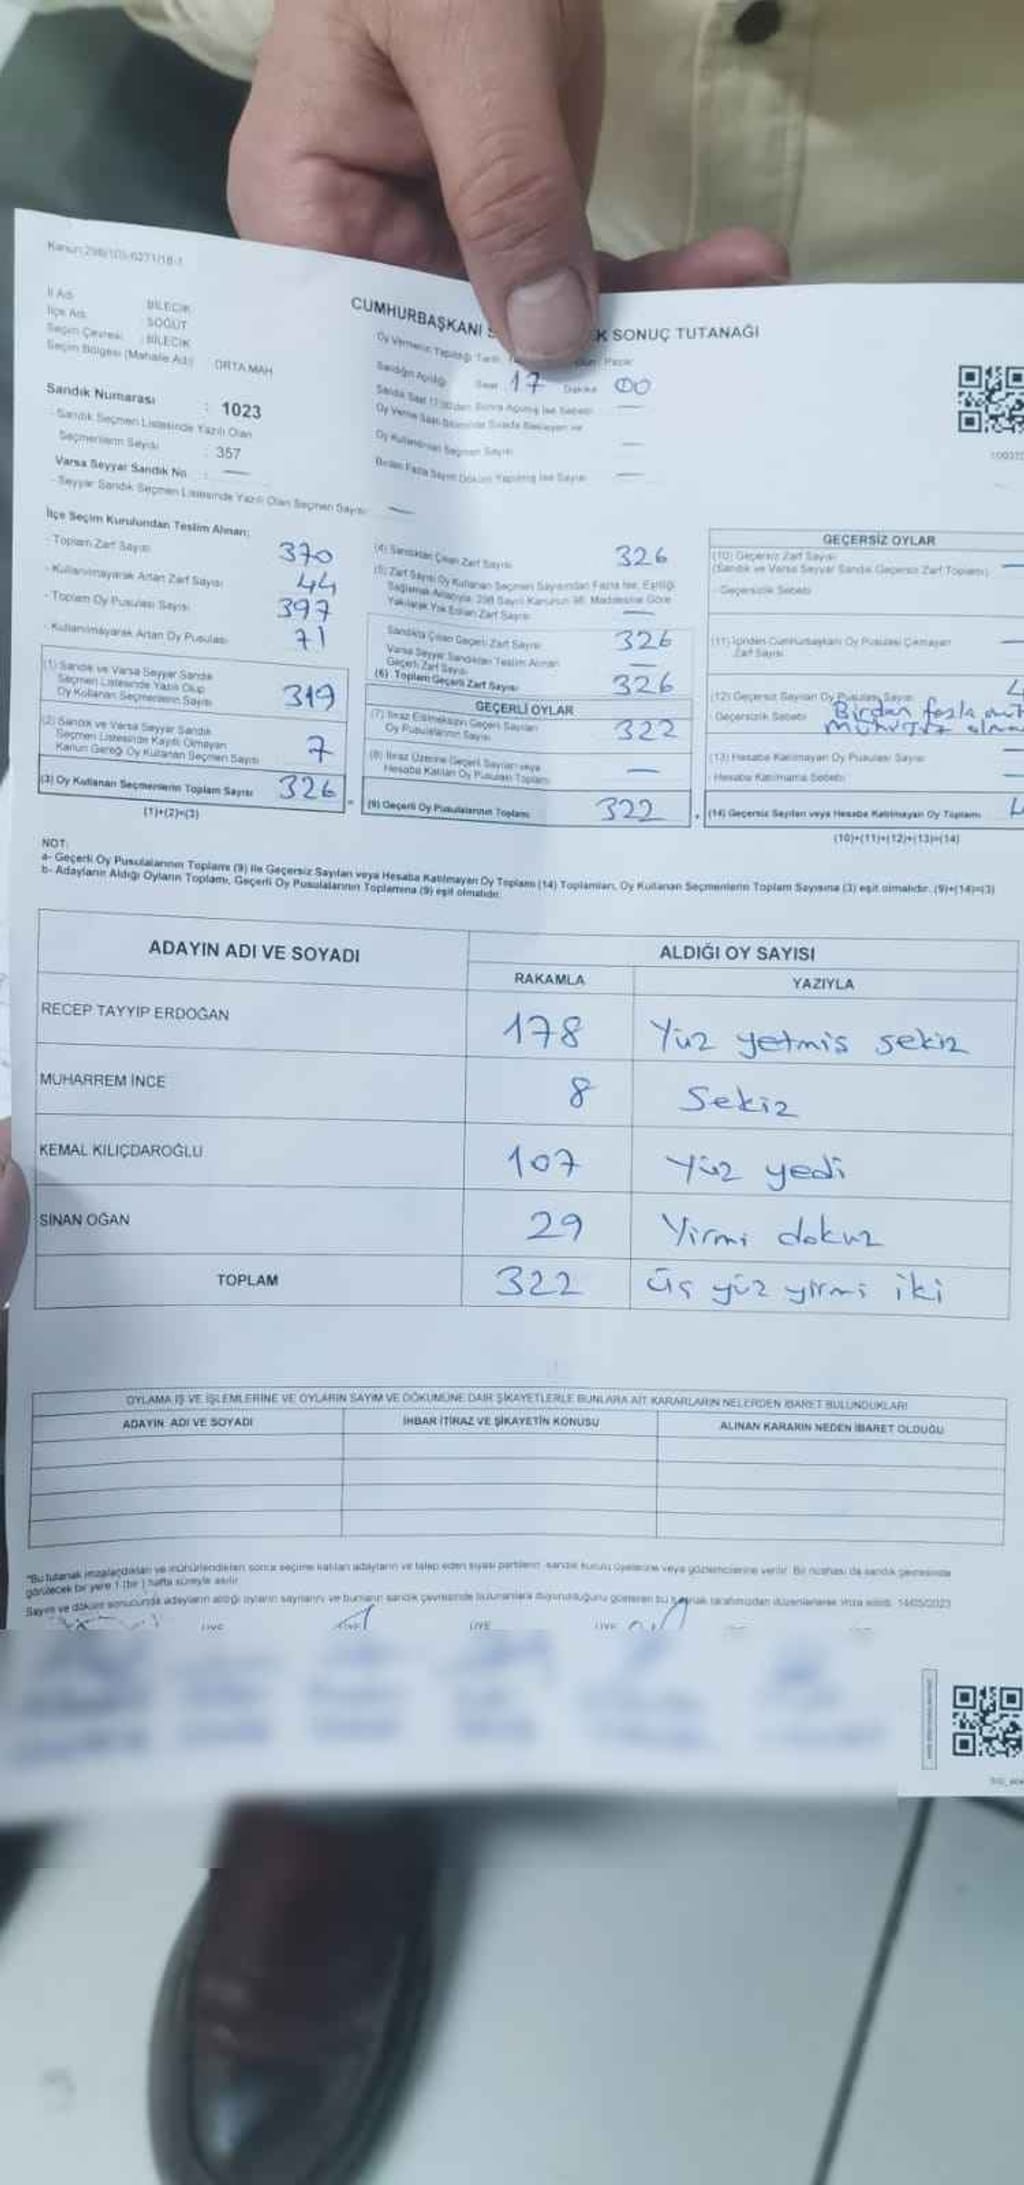 Kanun:298/105-6271/18-1
İl Adı BİLECİK
İlçe Adı SÖĞÜT
Seçim Çevresi : BİLECİK
Seçim Bölgesi (Mahalle Adı) ORTA MAH
CUMHURBAŞKANI S K SONUÇ TUTANAĞI
Oy Vermenin Yapıldığı Tarih Pazar
Sandığın Açıldığı Saat 17 Dakika 00
Sandık Numarası : 1023
- Sandık Seçmen Listesinde Yazılı Olan
Seçmenlerin Sayısı : 357
Varsa Seyyar Sandık No : —
- Seyyar Sandık Seçmen Listesinde Yazılı Olan Seçmen Sayısı —
Sandık Saat 17:00'den Sonra Açılmış İse Sebebi —
Oy Verme Saati Bitiminde Sırada Bekleyen ve
Oy Kullandırılan Seçmen Sayısı —
Birden Fazla Sayım Döküm Yapılmış İse Sayısı —
İlçe Seçim Kurulundan Teslim Alınan;
- Toplam Zarf Sayısı 370
- Kullanılmayarak Artan Zarf Sayısı 44
- Toplam Oy Pusulası Sayısı 397
- Kullanılmayarak Artan Oy Pusulası 71
(1) Sandık ve Varsa Seyyar Sandık
Seçmen Listesinde Yazılı Olup
Oy Kullanan Seçmenlerin Sayısı 319
(2) Sandık ve Varsa Seyyar Sandık
Seçmen Listesinde Kayıtlı Olmayan
Kanun Gereği Oy Kullanan Seçmen Sayısı 7
(3) Oy Kullanan Seçmenlerin Toplam Sayısı 326
(1)+(2)=(3)
(4) Sandıktan Çıkan Zarf Sayısı 326
(5) Zarf Sayısı Oy Kullanan Seçmen Sayısından Fazla İse, Eşitliği
Sağlamak Amacıyla, 298 Sayılı Kanunun 98. Maddesine Göre
Yakılarak Yok Edilen Zarf Sayısı —
Sandıkta Çıkan Geçerli Zarf Sayısı 326
Varsa Seyyar Sandıktan Teslim Alınan
Geçerli Zarf Sayısı —
(6) Toplam Geçerli Zarf Sayısı 326
GEÇERLİ OYLAR
(7) İtiraz Edilmeksizin Geçerli Sayılan
Oy Pusulalarının Sayısı 322
(8) İtiraz Üzerine Geçerli Sayılan veya
Hesaba Katılan Oy Pusulası Toplamı —
(9) Geçerli Oy Pusulalarının Toplamı 322
GEÇERSİZ OYLAR
(10) Geçersiz Zarf Sayısı
(Sandık ve Varsa Seyyar Sandık Geçersiz Zarf Toplamı) —
- Geçersizlik Sebebi
(11) İçinden Cumhurbaşkanı Oy Pusulası Çıkmayan
Zarf Sayısı —
(12) Geçersiz Sayılan Oy Pusulası Sayısı 4
Geçersizlik Sebebi Birden fazla
(13) Hesaba Katılmayan Oy Pusulası Sayısı —
Hesaba Katılmama Sebebi —
(14) Geçersiz Sayılan veya Hesaba Katılmayan Oy Toplamı 4
(10)+(11)+(12)+(13)=(14)
NOT:
a- Geçerli Oy Pusulalarının Toplamı (9) ile Geçersiz Sayılan veya Hesaba Katılmayan Oy Toplamı (14) Toplamları, Oy Kullanan Seçmenlerin Toplam Sayısına (3) eşit olmalıdır. (9)+(14)=(3)
b- Adayların Aldığı Oyların Toplamı, Geçerli Oy Pusulalarının Toplamına (9) eşit olmalıdır.
ADAYIN ADI VE SOYADI ALDIĞI OY SAYISI
RAKAMLA YAZIYLA
RECEP TAYYİP ERDOĞAN 178 Yüz yetmis sekiz
MUHARREM İNCE 8 Sekiz
KEMAL KILIÇDAROĞLU 107 Yüz yedi
SİNAN OĞAN 29 Yirmi dokuz
TOPLAM 322 üç yüz yirmi iki
OYLAMA İŞ VE İŞLEMLERİNE VE OYLARIN SAYIM VE DÖKÜMÜNE DAİR ŞİKAYETLERLE BUNLARA AİT KARARLARIN NELERDEN İBARET BULUNDUKLARI
ADAYIN ADI VE SOYADI İHBAR İTİRAZ VE ŞİKAYETİN KONUSU ALINAN KARARIN NEDEN İBARET OLDUĞU
"Bu tutanak imzalandıktan ve mühürlendikten sonra seçime katılan adayların ve talep eden siyasi partilerin sandık kurulu üyelerine veya gözlemcilerine verilir. Bir nüshası da sandık çevresinde
görülecek bir yere 1 (bir) hafta süreyle asılır.
Sayım ve döküm sonucunda adayların aldığı oyların sayılarını ve bunların sandık çevresinde bulunanlara duyurulduğunu gösteren bu tutanak tarafımızdan düzenlenerek imza edildi. 14/05/2023